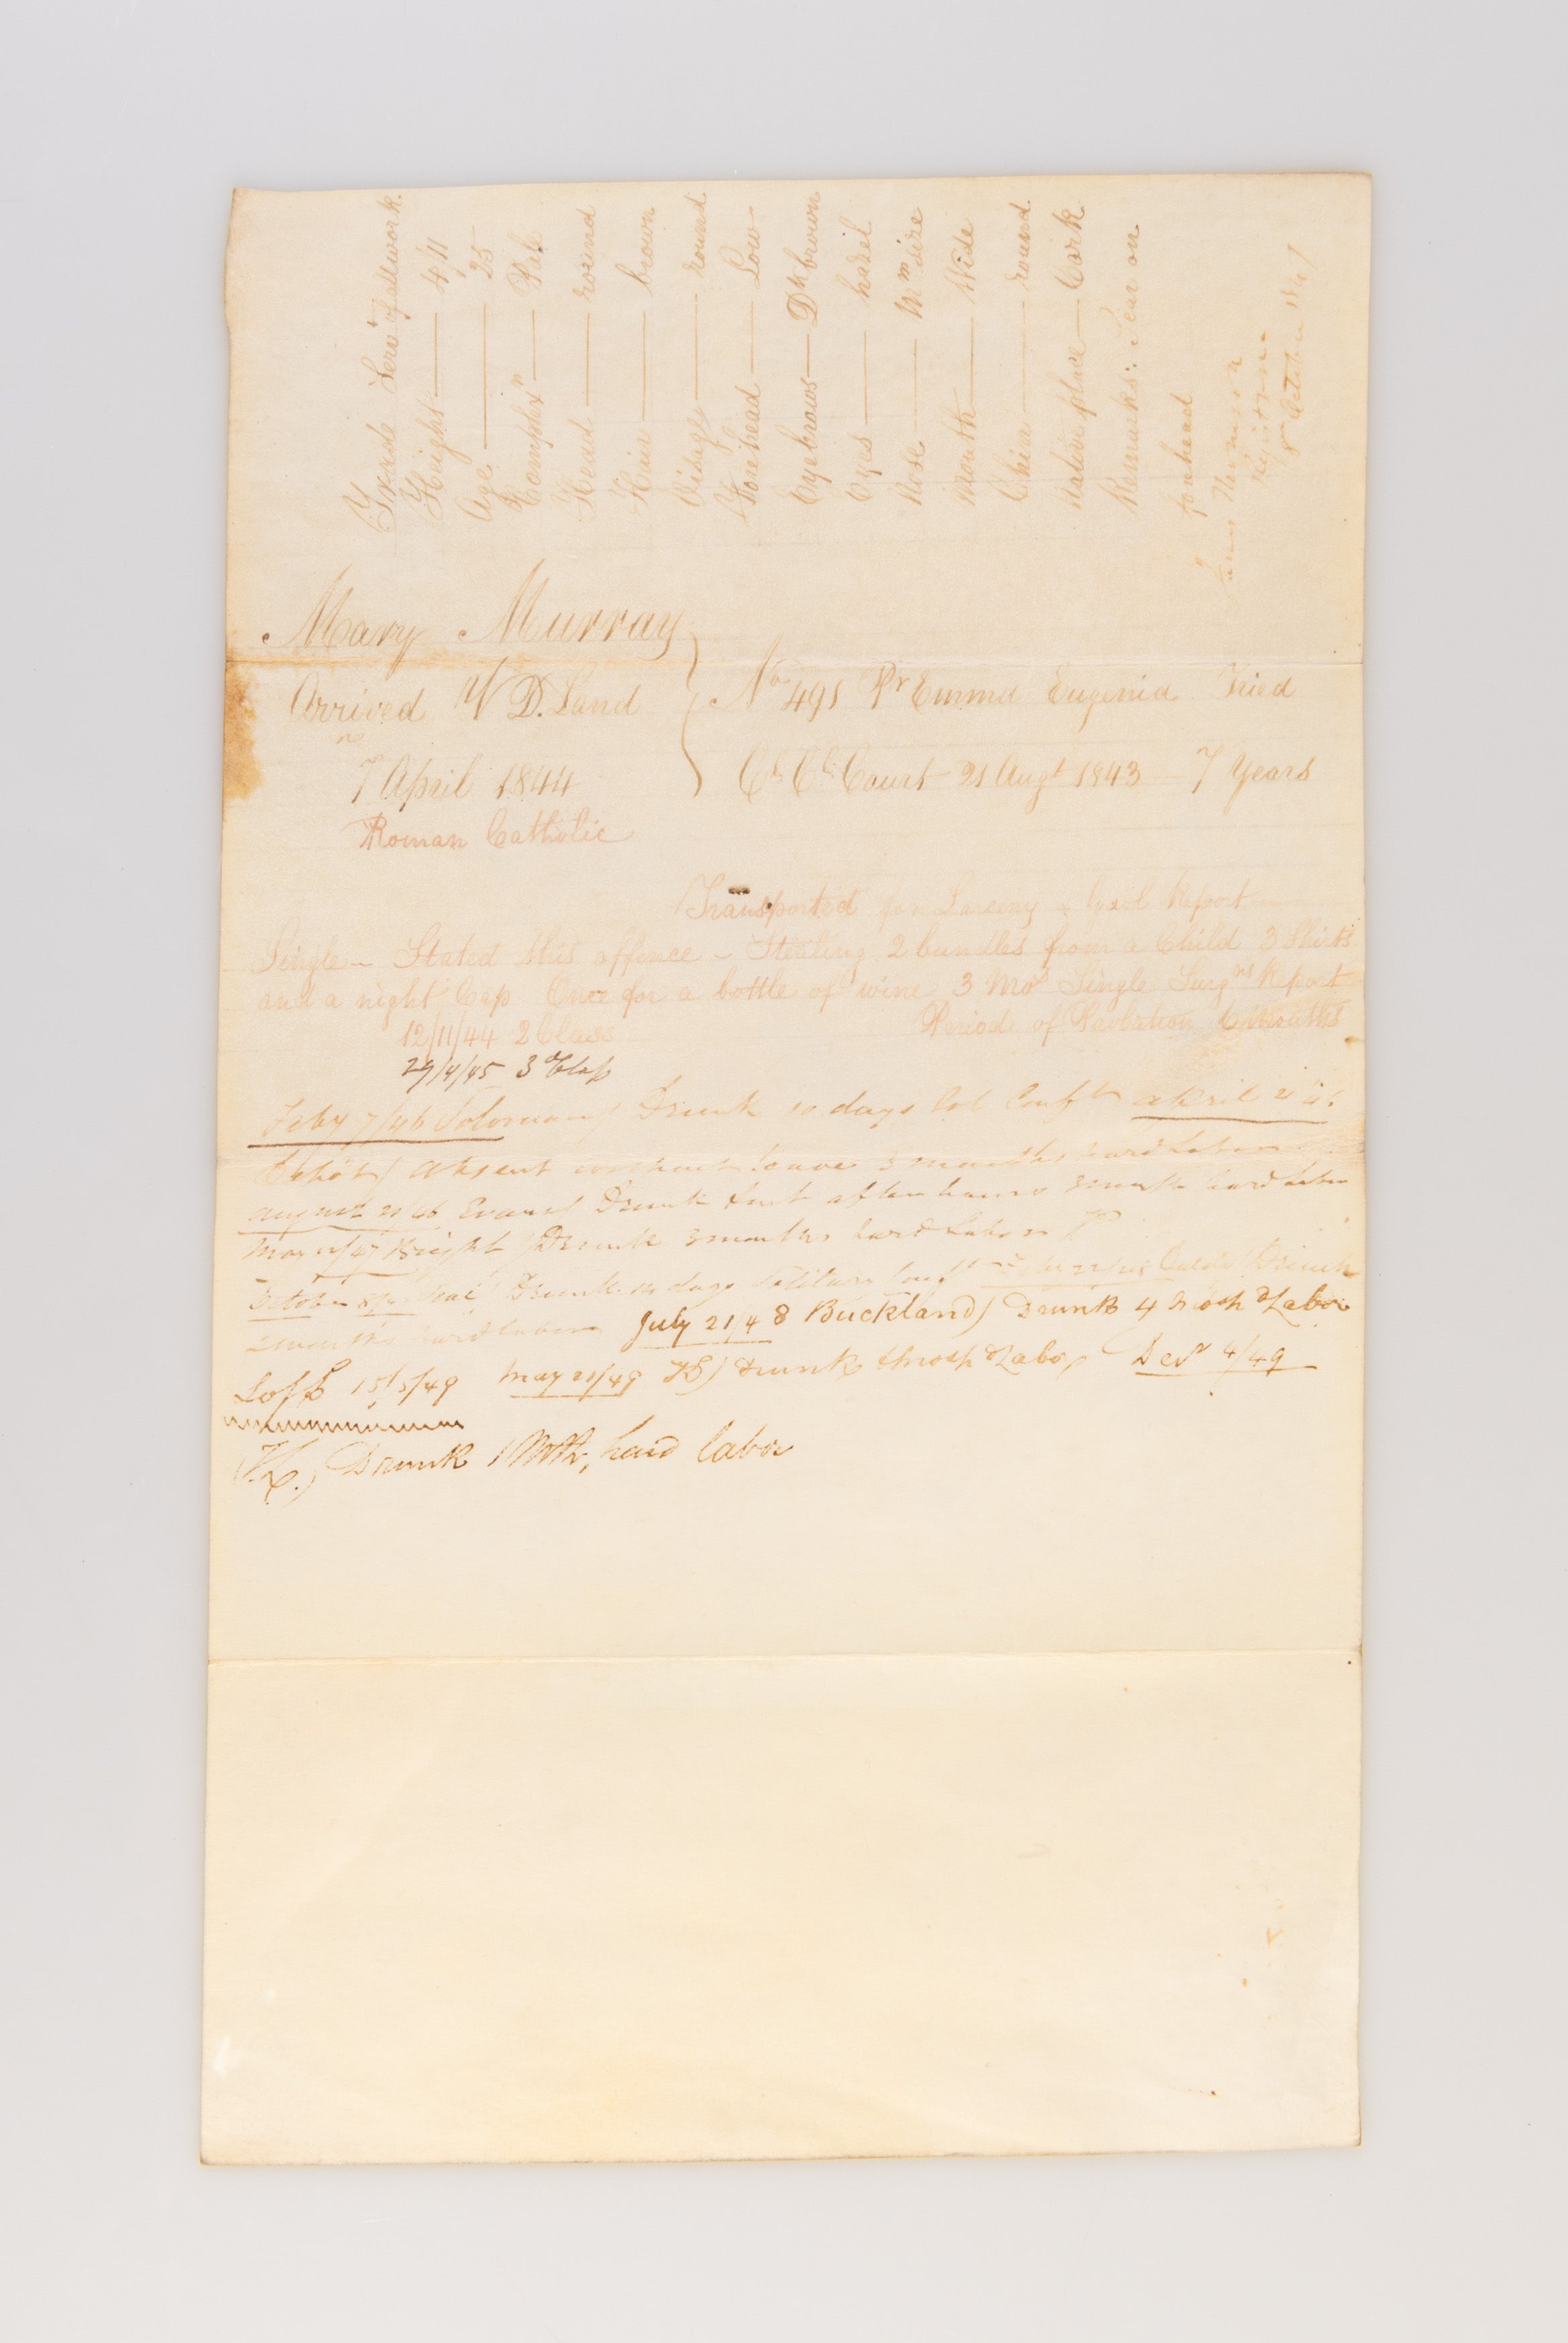 Trade Servt of allwork.
Height — 4/11
Age — 25
Complexn — Pale
Head — round
Hair — brown
Visage — round
Forehead — Low
Eyebrows — Dk brown
Eyes — hazel
Nose — Mm size
Mouth — Wide
Chin — round
Native place — Cork
Remarks: Scar on
forehead
8 October 1847
Mary Murray
Arrived V D. Land
7 April 1844
Roman Catholic
No 491 Pr Emma Eugenia Tried
Cl. Cl. Court 21 Augt 1843 — 7 Years
Transported for Larceny Gaol Report
Single – Stated this offence – Stealing 2 bundles from a Child 3 Shirts
and a night Cap Once for a bottle of wine 3 Mos Single Surgns Report
Periode of Probation 6 Months
12/11/44 2 Class
29/4/45 3 Class
Feby 7/46 Solomon / Drunk 10 days Sol Conft April
Absent without leave 3 months hard Labor
August 21/46 Evans / Drunk & out after hours 3 months hard Labor
Mar 11/47 Bright / Drunk 3 months hard Labor
October Drunk 14 days Solitary Conft Drunk
2 months hard labor July 21/48 Buckland / Drunk 4 Mos H Labor
15/5/49 May 21/49 Drunk H Labor Decr 4/49
Drunk 1 Mth, hard labor